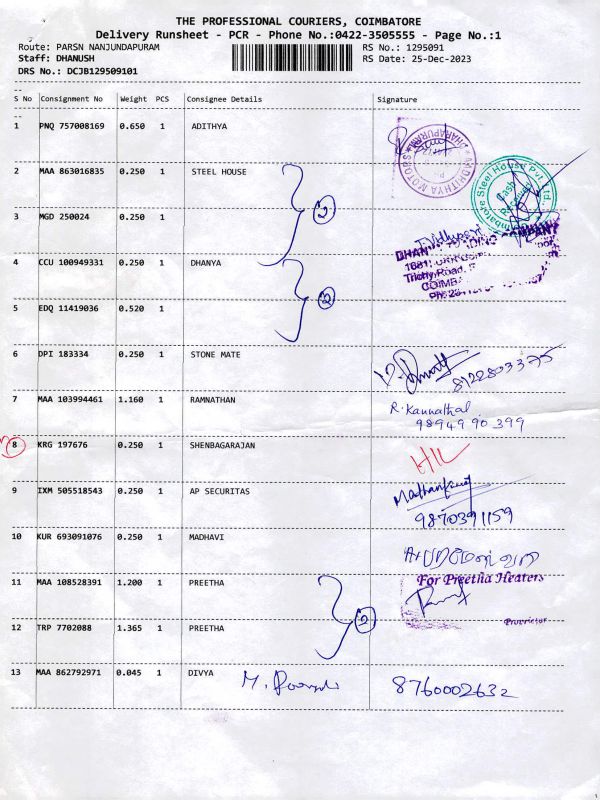 THE PROFESSIONAL COURIERS, COIMBATORE
Delivery Runsheet - PCR - Phone No.:0422-3505555 - Page No.:1
Route: PARSN NANJUNDAPURAM RS No.: 1295091
Staff: DHANUSH RS Date: 25-Dec-2023
DRS No.: DCJB129509101
S No Consignment No Weight PCS Consignee Details Signature
1 PNQ 757008169 0.650 1 ADITHYA
2 MAA 863016835 0.250 1 STEEL HOUSE
3 MGD 250024 0.250 1
2
4 CCU 100949331 0.250 1 DHANYA
5 EDQ 11419036 0.520 1
2
6 DPI 183334 0.250 1 STONE MATE
8122803375
7 MAA 103994461 1.160 1 RAMNATHAN R. Kannathal
98949 90 399
8 KRG 197676 0.250 1 SHENBAGARAJAN H/L
9 IXM 505518543 0.250 1 AP SECURITAS
9870391159
10 KUR 693091076 0.250 1 MADHAVI
11 MAA 108528391 1.200 1 PREETHA For Preetha Heaters
2
12 TRP 7702088 1.365 1 PREETHA Proprietor
13 MAA 862792971 0.045 1 DIVYA 8760002632